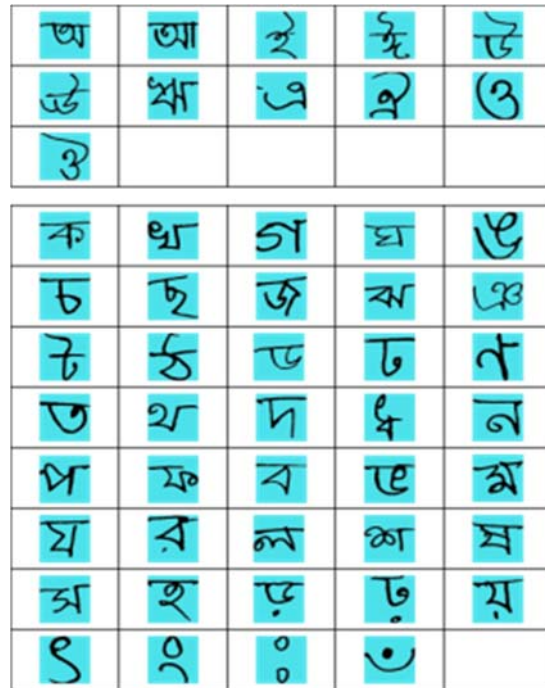 অ আ ই ঈ উ
ঊ ঋ এ ঐ ও
ঔ
ক খ গ ঘ ঙ
চ ছ জ ঝ ঞ
ট ঠ ড ঢ ণ
ত থ দ ধ ন
প ফ ব ভ ম
য র ল শ ষ
স হ ড় ঢ় য়
ৎ ং ঃ ঁ